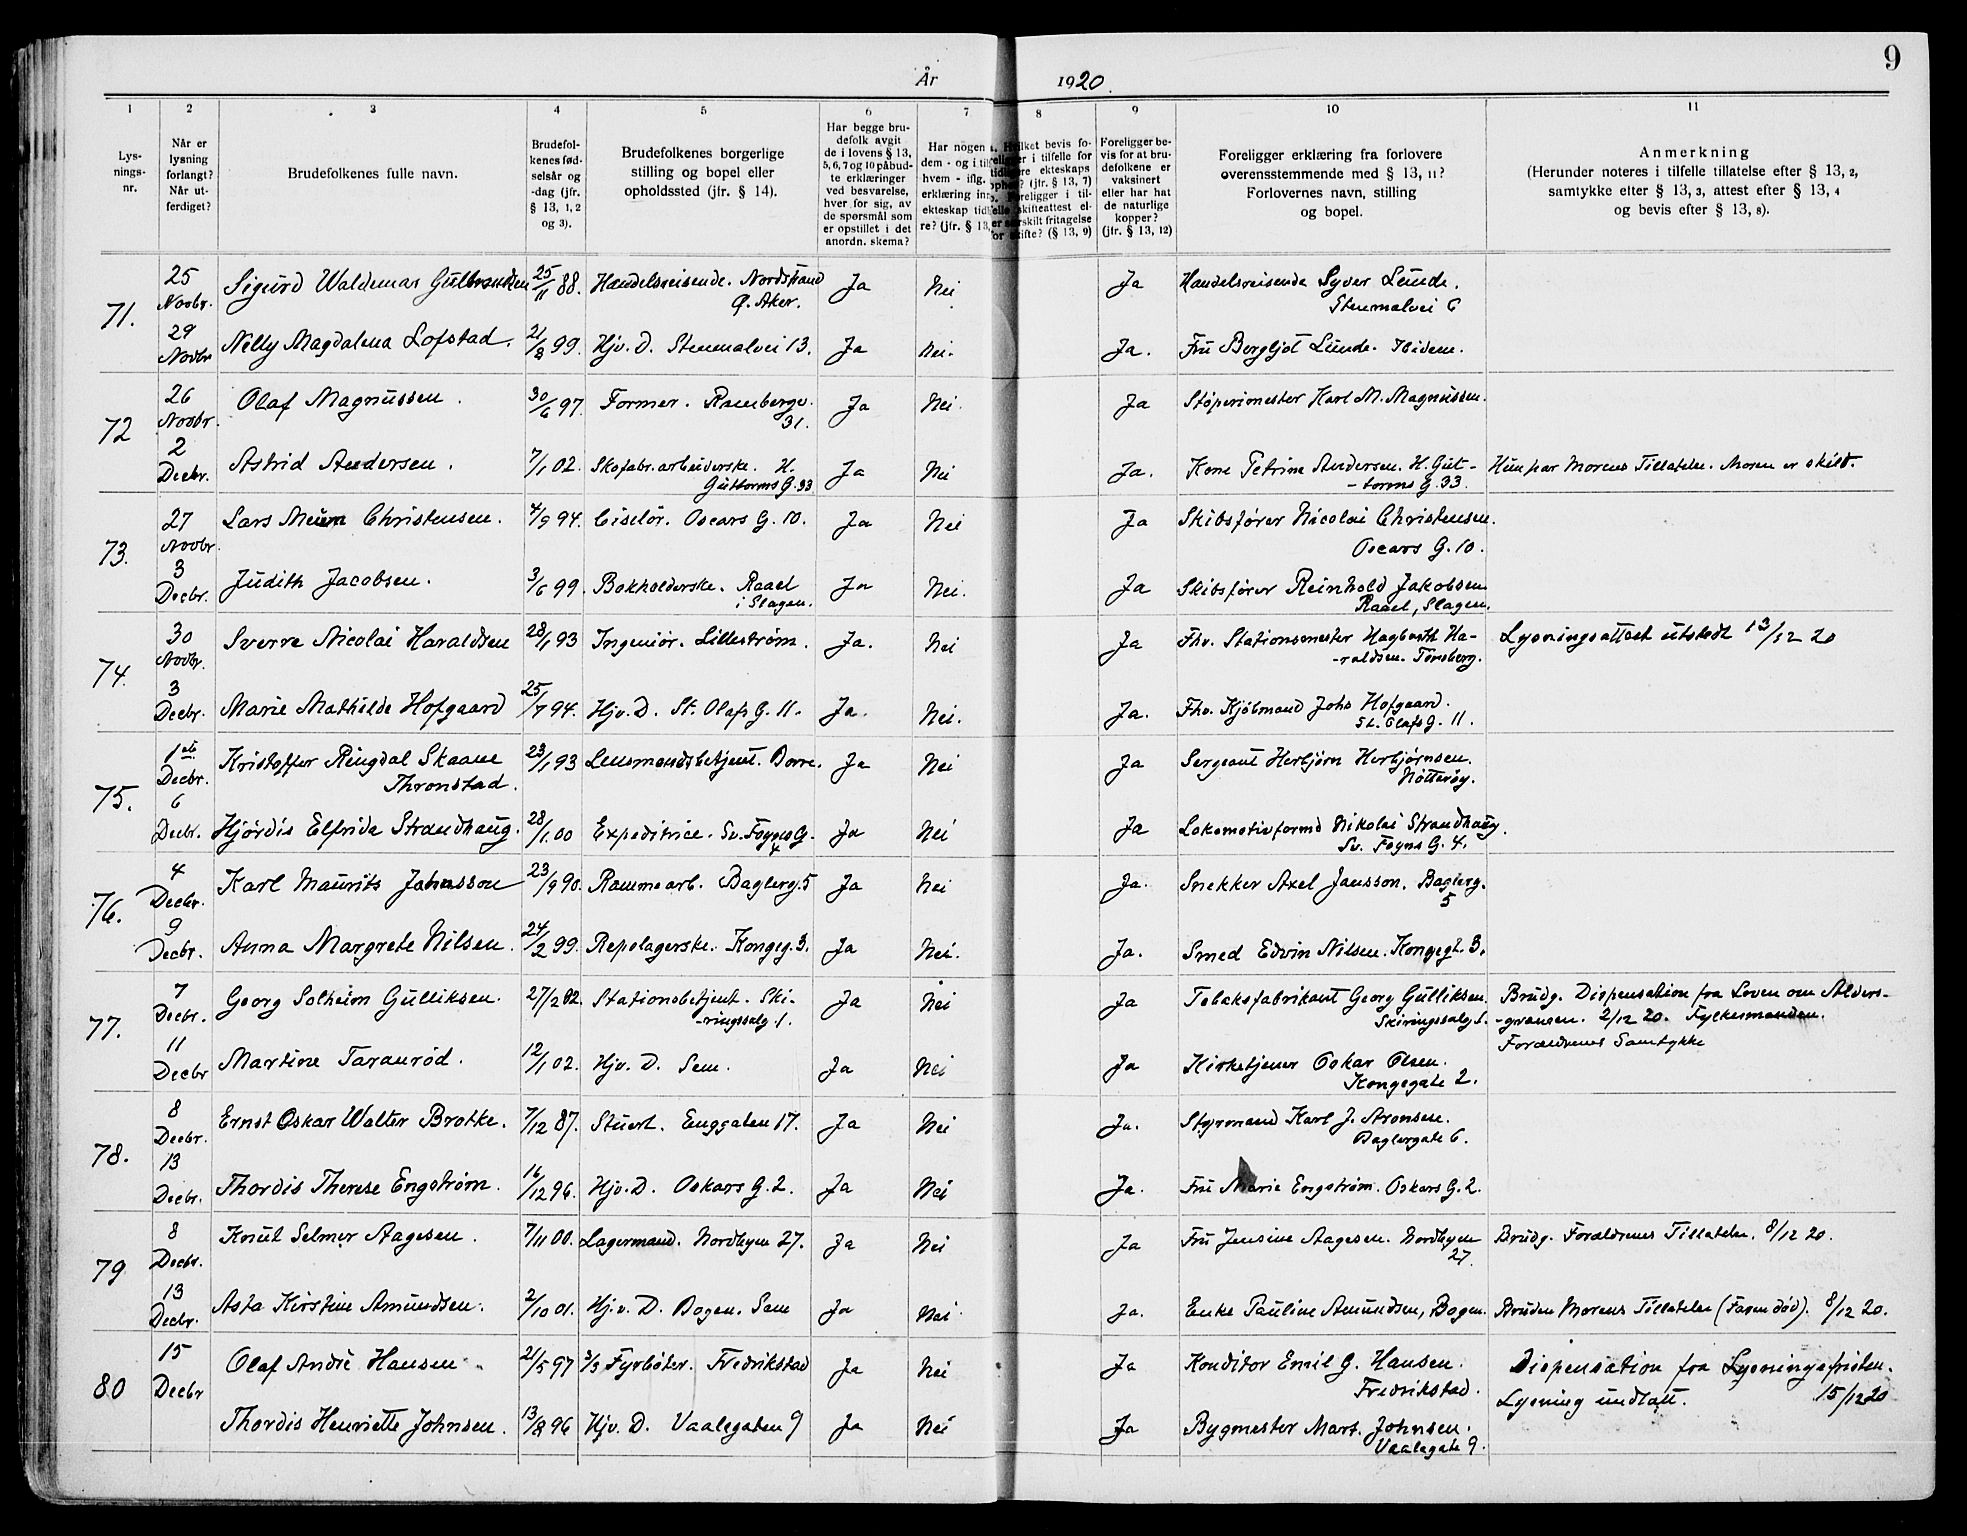 9
År 1920.
1 2 3 4 5 6 7 8 9 10 11
Lys-
nings-
nr.
Når er
lysning
forlangt?
Når ut-
ferdiget?
Brudefolkenes fulle navn.
Brudefol-
kenes fød-
selsår og
-dag (jfr.
§ 13, 1, 2
og 3).
Brudefolkenes borgerlige
stilling og bopel eller
opholdssted (jfr. § 14).
Har begge bru-
defolk avgit
de i lovens § 13,
5, 6, 7 og 10 påbud-
te erklæringer
ved besvarelse,
hver for sig, av
de spørsmål som
er opstillet i det
anordn. skema?
Har nogen
dem - og i
hvem - iflg.
erklæring
ekteskap
re? (jfr. § 13,
bevis fo-
i tilfelle for
ekteskaps
(jfr. § 13, 7)
Foreligger i til-
skifteattest el-
fritagelse
skifte? (§ 13, 9)
Foreligger be-
vis for at bru-
defolkene er
vaksinert
eller har hat
de naturlige
kopper?
(jfr. § 13, 12)
Foreligger erklæring fra forlovere
overensstemmende med § 13, 11?
Forlovernes navn, stilling
og bopel.
Anmerkning
(Herunder noteres i tilfelle tillatelse efter § 13, 2,
samtykke efter § 13, 3, attest efter § 13, 4
og bevis efter § 13, 8).
71.
25 Novbr. Sigurd Waldemar Gulbrandsen 25/11 88. Handelsreisende. Nordstrand Ja Nei Ja Handelsreisende Syver Lunde.
Ø. Aker. Stenmalvei 6
29 Novbr Nelly Magdalena Lofstad. 21/8 99. Hjv. D. Stenmalvei 13. Ja Nei. Ja. Fru Bergljot Lunde. Ibidem.
72
26 Novbr. Olaf Magnussen. 30/6 97. Former. Rambergv. Ja Nei. Ja Støperimester Karl M. Magnussen.
31.
2 Decbr. Astrid Andersen. 7/1 02. Skofabr.arbeiderske. H. Ja Nei Ja. Kone Petrine Andersen. H. Gut- Hun har Morens Tillatelse. Moren er skilt.
Guttorms G. 33 -torms G. 33.
73.
27 Novbr. Lars Meum Christensen. 4/9 94. Ciselør. Oscars G. 10. Ja Nei Ja Skibsfører Nicolai Christensen.
Oscars G. 10.
3 Decbr. Judith Jacobsen. 3/6 99. Bokholderske. Raael Ja Nei. Ja Skibsfører Reinhold Jakobsen
i Slagen. Raael, Slagen.
74.
30 Novbr. Sverre Nicolai Haraldsen 28/1 93 Ingeniør. Lillestrøm. Ja. Nei Ja Fhv. Stationsmester Hagbarth Ha- Lysningsattest utstedt 13/12 20
-raldsen. Tønsberg.
3 Decbr. Marie Mathilde Hofgaard 25/7 94. Hjv. D. St. Olafs G. 11. Ja. Nei. Ja. Fhv. Kjøbmand Johs Hofgaard.
St. Olafs G. 11.
75.
1ste Decbr. Kristoffer Ringdal Skaane 23/1 93 Lensmandsbetjent. Borre. Ja Nei Ja Sergeant Herbjørn Herbjørnsen.
Thronstad. Nøtterøy.
6 Decbr. Hjørdis Elfrida Strandhaug. 28/1 00 Expeditrice. Sv. Foyns G. Ja Nei Ja Lokomotivformd Nikolai Strandhaug.
4 Sv. Foyns G. 4.
76.
4 Decbr. Karl Maurits Johnsson 23/9 90. Rammearb. Baglerg. 5 Ja Nei Ja. Snekker Axel Jansson. Baglerg.
5
9 Decbr. Anna Margrete Nilsen. 24/2 99. Repslagerske. Kongeg. 3. Ja Nei. Ja. Smed Edvin Nilsen. Kongegt. 3.
77.
7 Decbr. Georg Solheim Gulliksen. 27/2 02. Stationsbetjent. Ski- Ja Nei Ja Tobaksfabrikant Georg Gulliksen. Brudg. Dispensation fra Loven om Alders-
-ringssalg 1. Skiringssalg 1. -grænsen. 2/12 20. Fylkesmanden.
Forældrenes Samtykke
11 Decbr Martine Taranrød. 12/1 02. Hjv. D. Sem. Ja Nei Ja Kirketjener Oskar Olsen.
Kongegate 2.
78.
8 Decbr. Ernst Oskar Walter Brotke. 7/12 87. Stuert. Enggaten 17. Ja Nei Ja. Styrmand Karl J. Aronsen.
Baglergate 6.
13 Decbr. Thordis Therese Engstrøm. 16/12 96. Hjv. D. Oskars G. 2. Ja Nei Ja. Fru Marie Engstrøm. Oskars G. 2.
79
8 Decbr. Knut Selmer Aagesen. 7/11 00. Lagermand. Nordbyen 27. Ja Nei Ja Fru Jensine Aagesen. Nordbyen Brudg. Forældrenes Tillatelse. 8/12 20.
27.
13 Decbr. Asta Kirstine Amundsen. 2/10 01. Hj.v. D. Bogen. Sem Ja Nei Ja. Enke Pauline Amundsen, Bogen. Bruden Morens Tillatelse (Faren død). 8/12 20.
80
15 Decbr Olaf Andrè Hansen. 21/5 97 Fyrbøter. Fredrikstad Ja Nei Ja Konditor Emil G. Hansen. Dispensation fra Lysningsfristen.
Fredrikstad. Lysning undlatt. 15/12 20
Thordis Henriette Johnsen. 13/8 96 Hjv. D. Vaalegaten 9 Ja Nei Ja Bygmester Mart. Johnsen.
Vaalegate 9.